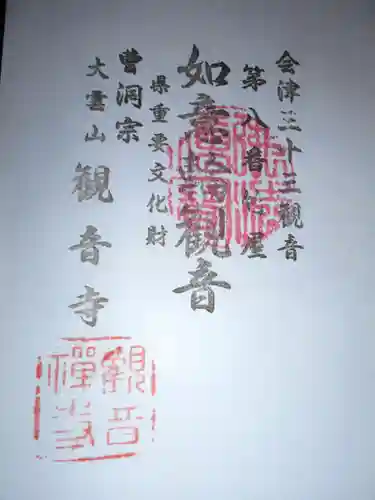 会津三十三観音
第八番 竹屋
如意輪観音
県重要文化財
曹洞宗
大雲山 観音寺
観音
禅寺